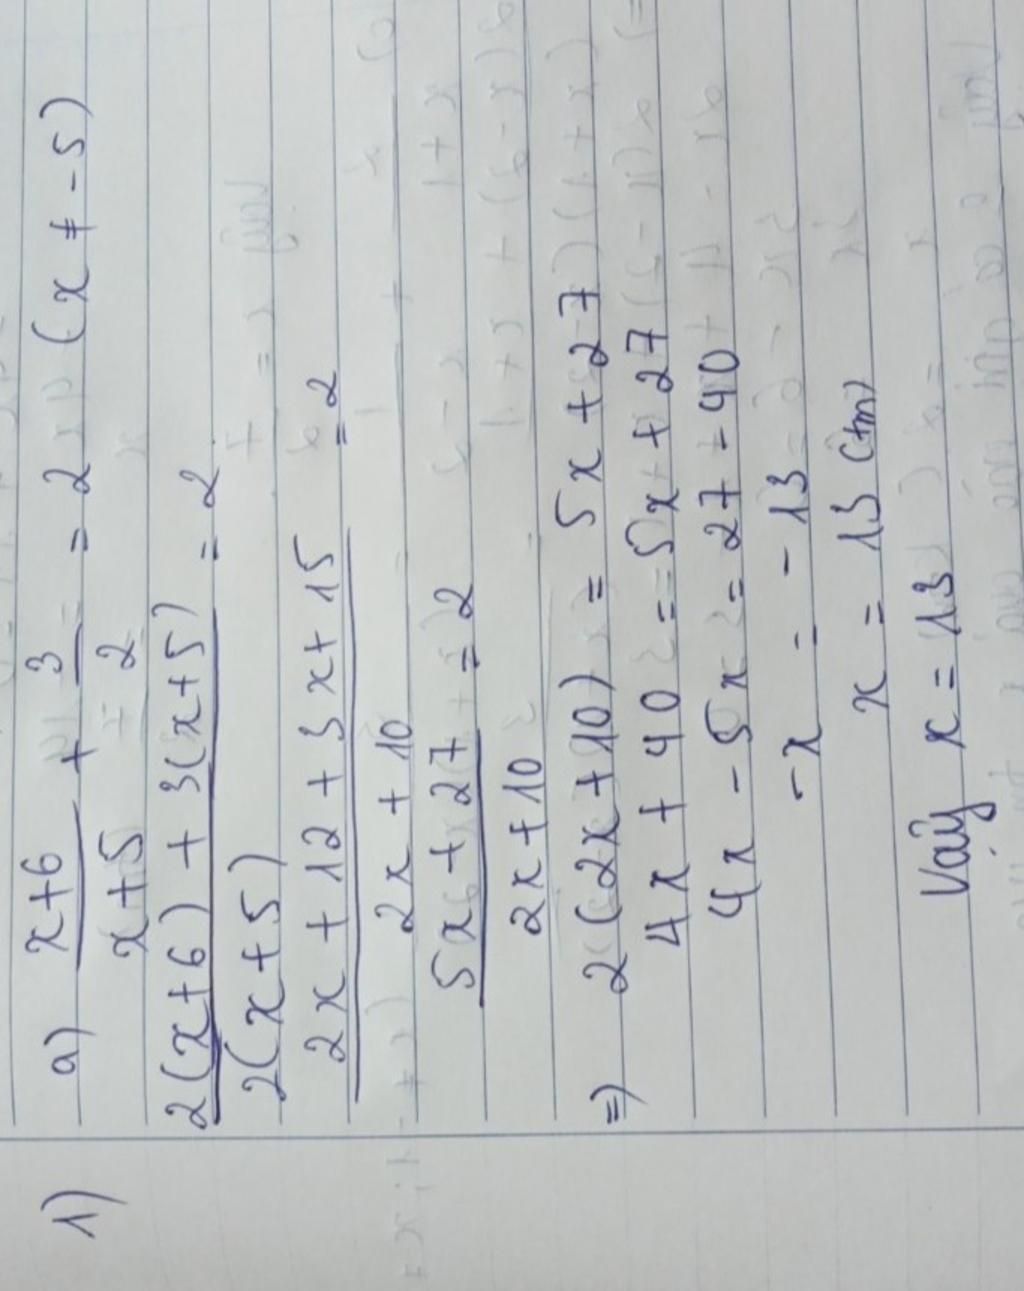 1) a) x+6/x+5 + 3/2 = 2 (x ≠ -5)
2(x+6) + 3(x+5)/2(x+5) = 2
2x + 12 + 3x + 15/2x + 10 = 2
5x + 27/2x + 10 = 2
=) 2(2x + 10) = 5x + 27
4x + 40 = 5x + 27
4x - 5x = 27 - 40
-x = -13
x = 13 (tm)
Vậy x = 13